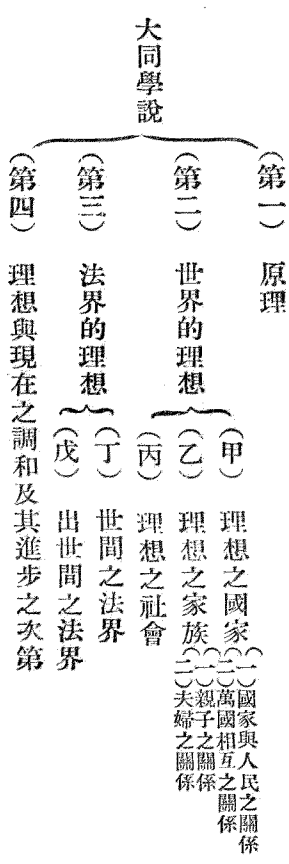 大同學說
（第一）　原理
（第二）　世界的理想
（甲）　理想之國家
（一）國家與人民之關係
（二）萬國相互之關係
（乙）　理想之家族
（一）親子之關係
（二）夫婦之關係
（丙）　理想之社會
（第三）　法界的理想
（丁）　世間之法界
（戊）　出世間之法界
（第四）　理想與現在之調和及其進步之次第